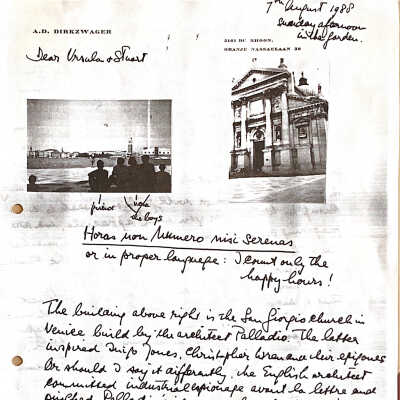 7th August 1988
sunday afternoon
in the garden.
A.D. DIRKZWAGER
3161 DU RHOON,
ORANJE NASSAULAAN 36
Dear Ursula & Stuart
the boys
Horas non Numero nisi Serenas
or in proper language: I count only the
happy hours!
The building above right is the San Giorgio church in
Venice build by the architect Palladio. The latter
inspired Inigo Jones, Christopher Wren and their epigones
Or should I say it differently, the English architect
committed industrial espionage avant la lettre and